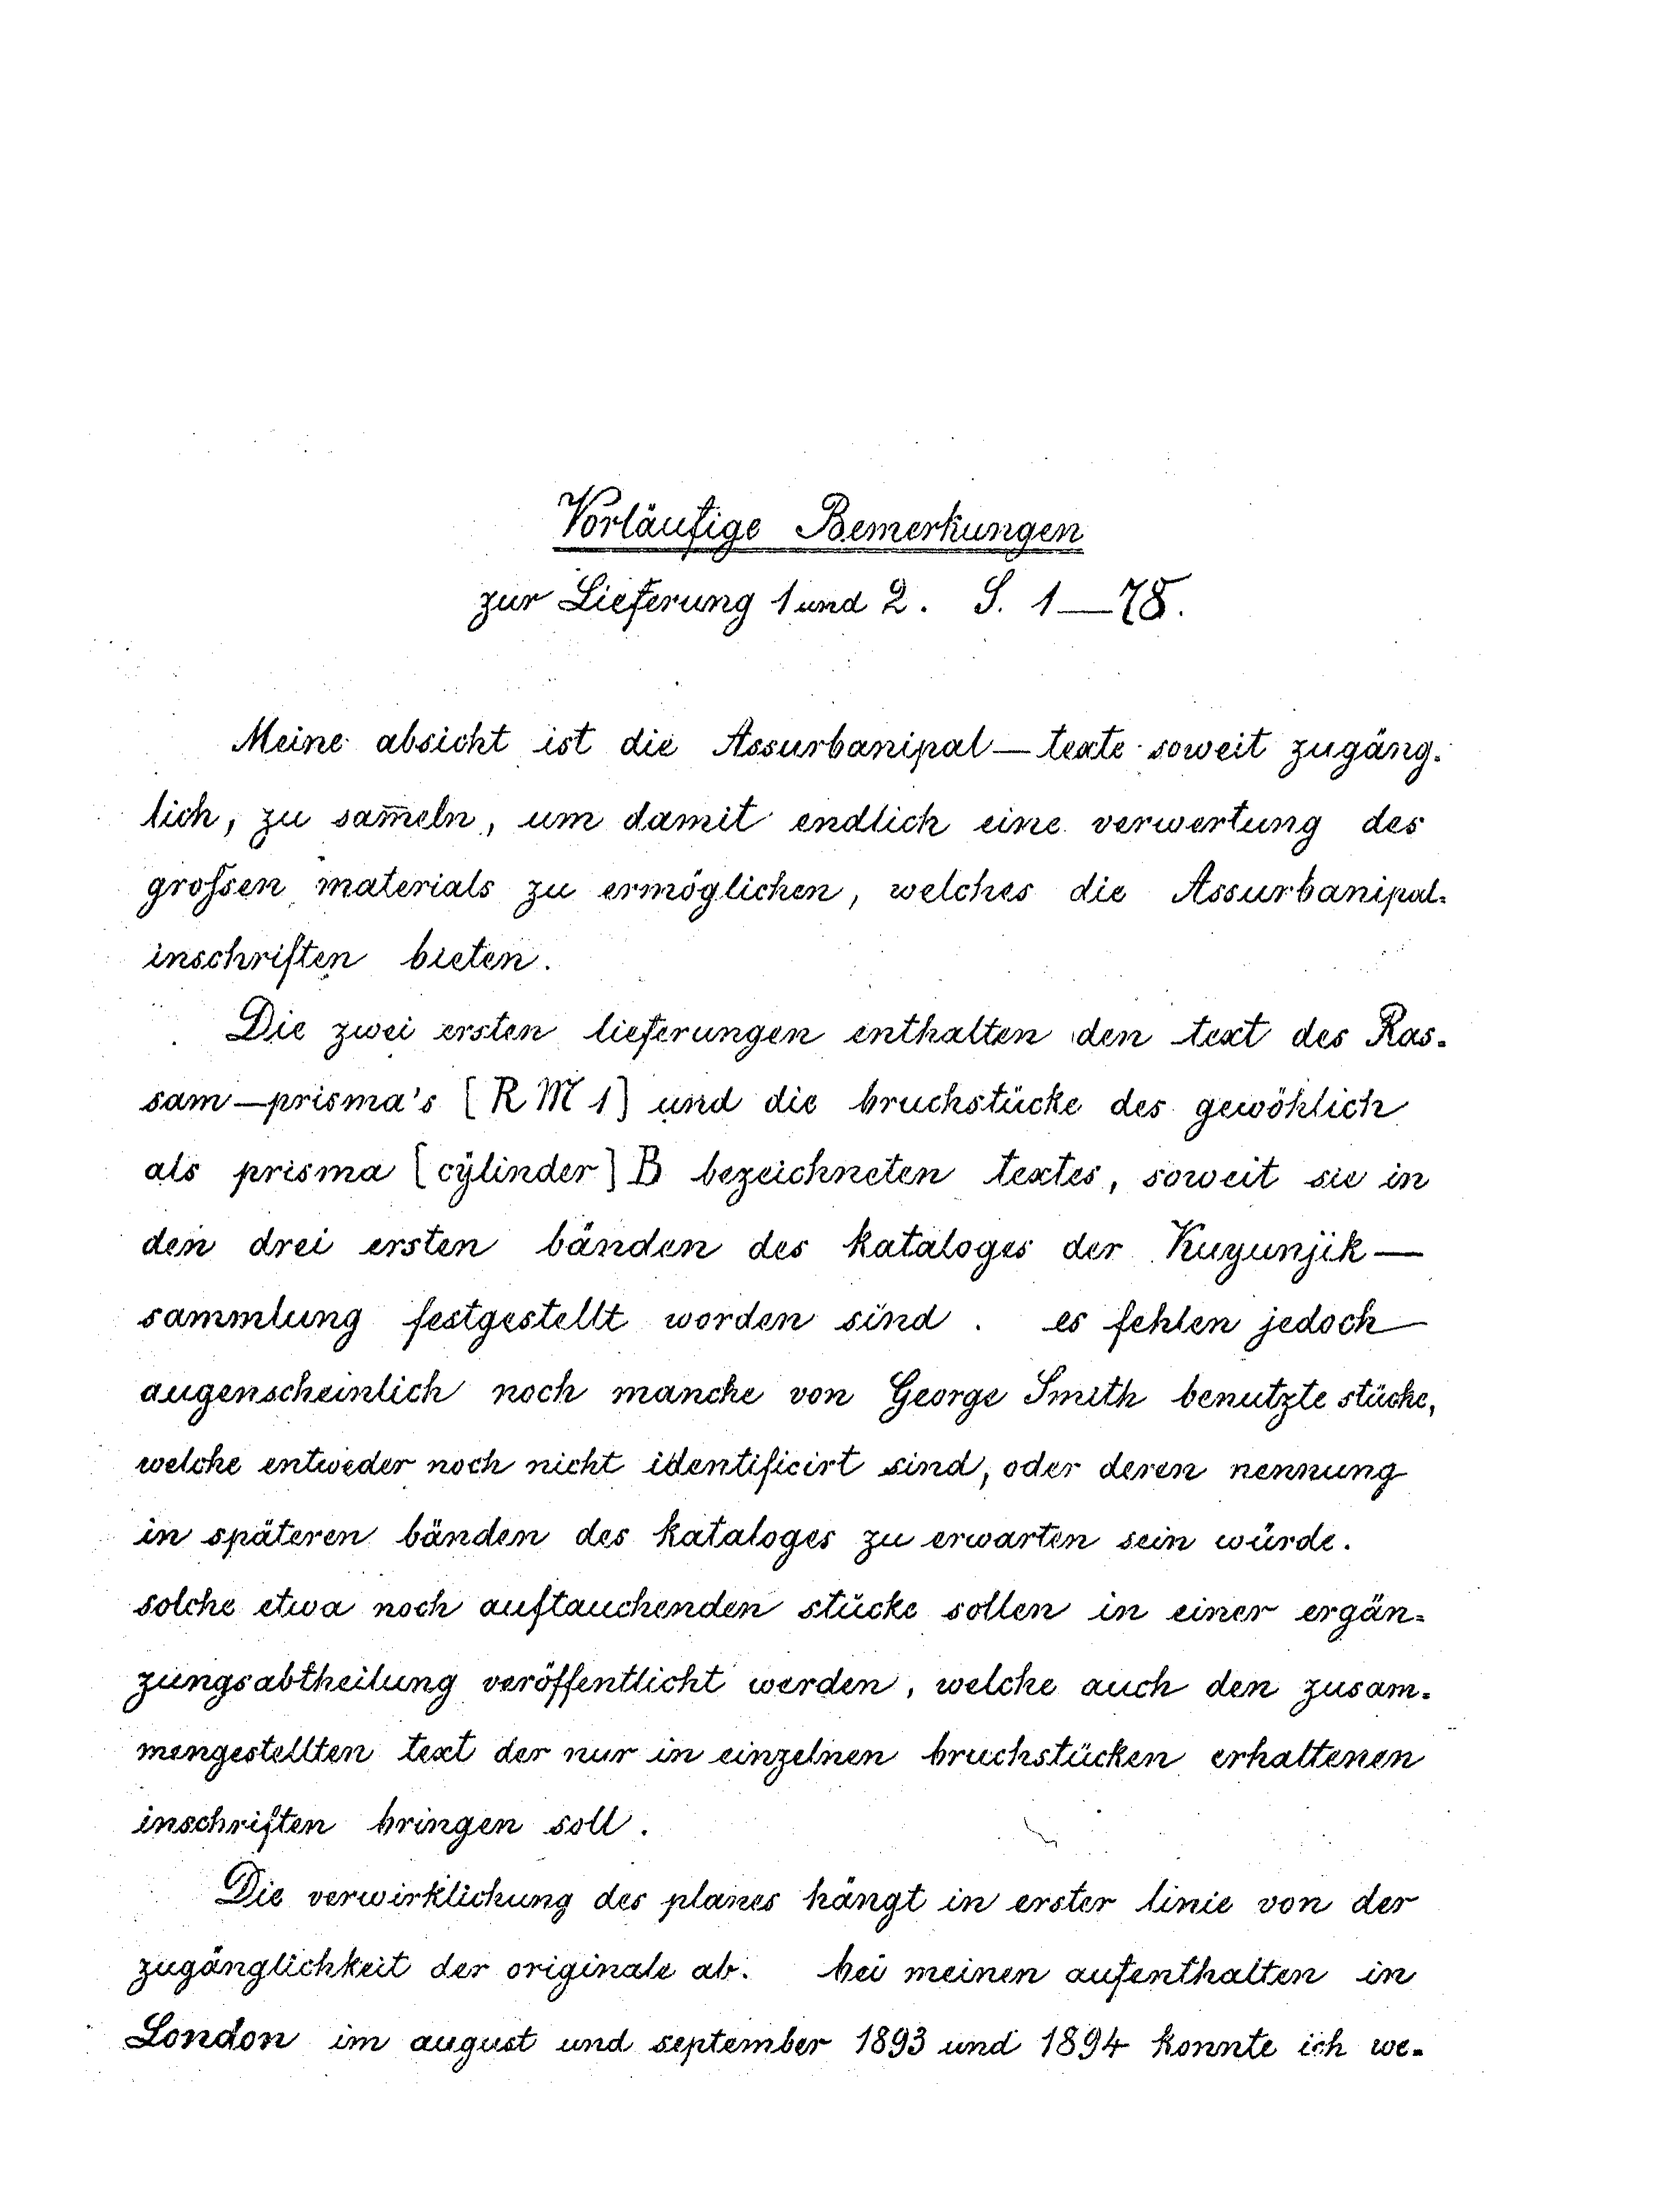 Vorläufige Bemerkungen
zur Lieferung 1 und 2. S. 1—78.
Meine absicht ist die Assurbanipal—texte soweit zugäng-
lich, zu sam̅eln, um damit endlich eine verwertung des
grofsen materials zu ermöglichen, welches die Assurbanipal-
inschriften bieten.
Die zwei ersten lieferungen enthalten den text des Ras-
sam—prisma's [RM 1] und die bruchstücke des gewöhlich
als prisma [cÿlinder] B bezeichneten textes, soweit sie in
den drei ersten bänden des kataloges der Kuyunjik—
sammlung festgestellt worden sind. es fehlen jedoch
augenscheinlich noch manche von George Smith benutzte stücke,
welche entweder noch nicht identificirt sind, oder deren nennung
in späteren bänden des kataloges zu erwarten sein würde.
solche etwa noch auftauchenden stücke sollen in einer ergän-
zungsabtheilung veröffentlicht werden, welche auch den zusam-
mengestellten text der nur in einzelnen bruchstücken erhaltenen
inschriften bringen soll.
Die verwirklichung des planes hängt in erster linie von der
zugänglichkeit der originale ab. bei meinen aufenthalten in
London im august und september 1893 und 1894 konnte ich we-